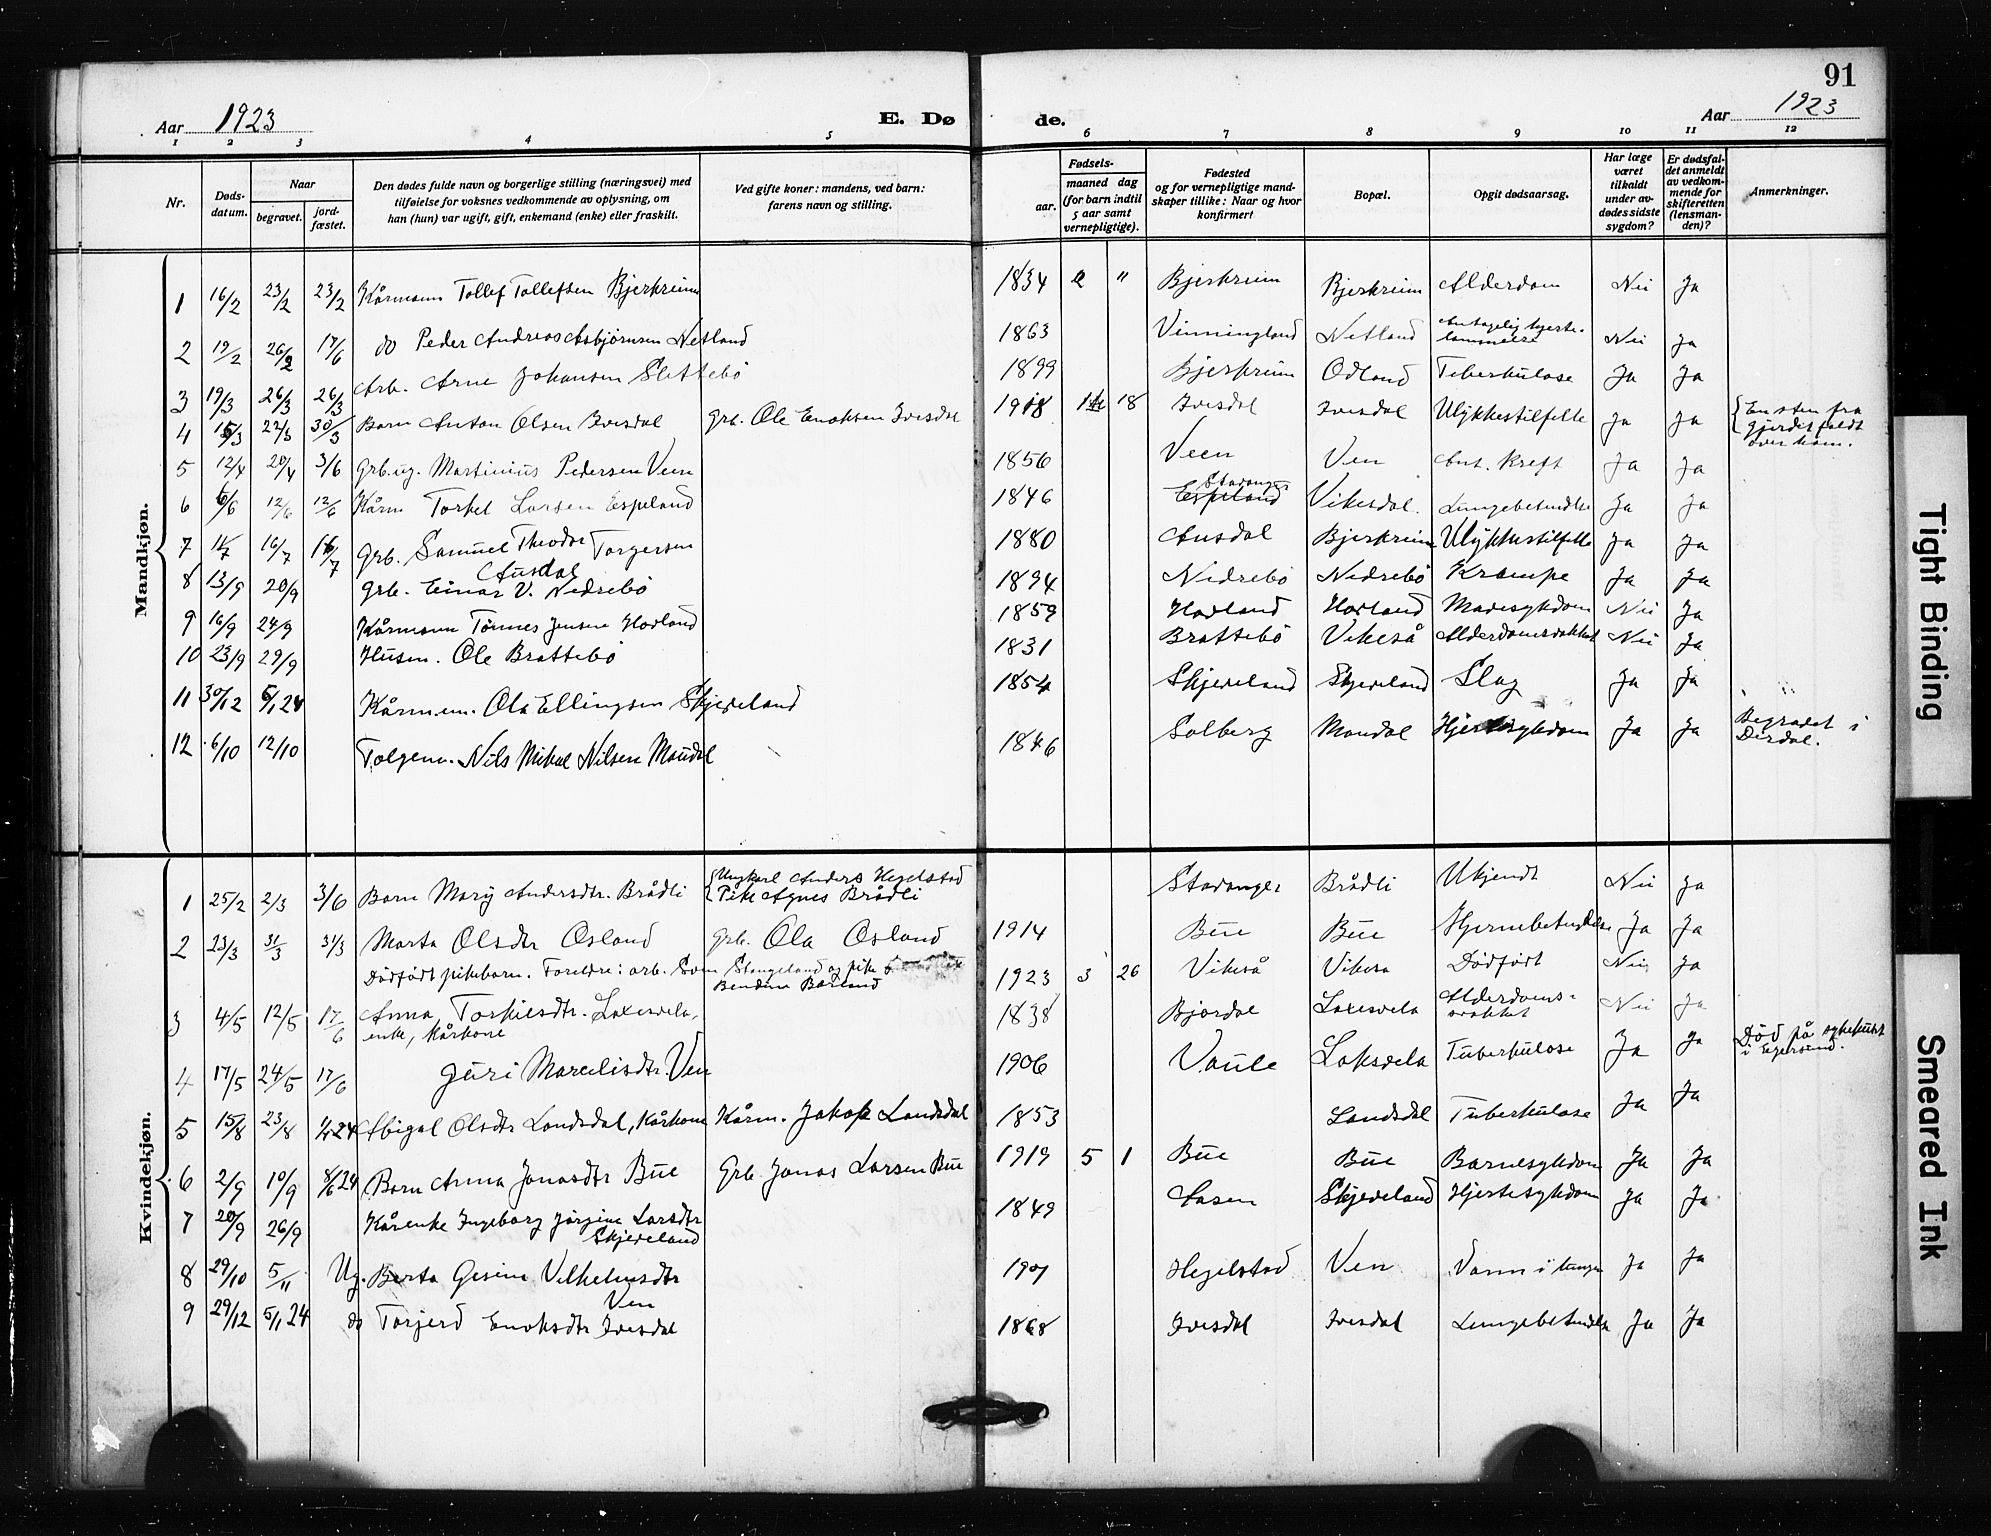 91
Aar 1923 E. Dø de. Aar 1923
1 2 3 4 5 6 7 8 9 10 11 12
Nr.
Døds-datum.
Naar
begravet.
jord-fæstet.
Den dødes fulde navn og borgerlige stilling (næringsvei) med
tilføielse for voksnes vedkommende av oplysning, om
han (hun) var ugift, gift, enkemand (enke) eller fraskilt.
Ved gifte koner: mandens, ved barn:
farens navn og stilling.
Fødsels-
aar.
maaned dag
(for barn indtil
5 aar samt
vernepligtige).
Fødested
og for vernepligtige mand-
skaper tillike: Naar og hvor
konfirmert
Bopæl.
Opgit dødsaarsag.
Har læge
været
tilkaldt
under av-
dødes sidste
sygdom?
Er dødsfal-
det anmeldt
av vedkom-
mende for
skifteretten
(lensman-
den)?
Anmerkninger.
Mandkjøn.
1 16/2 23/2 23/2 Kårmann Tollef Tollefsen Bjerkreim 1834 2 " Bjerkreim Bjerkreim Alderdom Nei Ja
2 19/2 26/2 17/6 do Peder Andreas Asbjørnsen Netland 1863 Vinningland Netland Antagelig hjerte-lammelse Nei Ja
3 19/3 26/3 26/3 Arb. Arne Johansen Slettebö 1899 Bjerkreim Odland Tuberkulose Ja Ja
4 15/3 22/3 30/3 Barn Anton Olsen Ivesdal Grb. Ole Enoksen Ivesdal 1918 18 Ivesdal Ivesdal Ulykkestilfelle Ja Ja En sten fra
gjerdet faldt
over ham.
5 12/4 20/4 3/6 Grb. ug. Martinius Pedersen Veen 1856 Veen Ven Ant. kreft Ja Ja
6 6/6 12/6 12/6 Kårm Torkel Larsen Espeland 1846 Stavanger Espeland Vikesdal. Lungebetendelse Ja Ja
7 11/7 16/7 16/7 Grb. Samuel Theodor Torgersen
Ausdal 1880 Ausdal Bjerkreim Ulykkestilfelle Ja Ja
8 13/9 20/9 Grb. Einar V. Nedrebö 1894 Nedrebö Nedrebö Krampe Ja Ja
9 16/9 24/9 Kårmann Tönnes Jensen Hovland 1859 Hovland Hovland Mavesykdom Nei Ja
10 23/9 29/9 Husm. Ole Brattebö 1831 Brattebö Vikeså Alderdomssvakhet Nei Ja
11 30/12 5/1 24 Kårmann. Ola Ellingsen Skjeveland 1854 Skjeveland Skjeveland Slag Ja Ja
12 6/10 12/10 Folgem. Nils Mikal Nilsen Maudal 1846 Solberg Maudal Hjertesykdom Ja Ja Begravet i
Dirdal.
Kvindekjøn.
1 25/2 2/3 3/6 Barn Mary Andersdtr. Brådli Ungkarl Anders Hegelstad
Pike Agnes Brådli Stavanger Brådli Ukjendt Nei Ja
2 23/3 31/3 31/3 Marta Olsdtr Osland Grb. Ola Osland 1914 Bue Bue Hjernebetendelse Ja Ja
Dödfödt pikebarn. Foreldre: arb. Som Stangeland og pike
Bendine Barland 1923 3 26 Vikeså Vikesa Dödfödt Nei Ja
3 4/5 12/5 17/6 Anna Torkilsdtr. Laxesvela,
enke, kårkone 1838 Bjordal Laxesvela Alderdoms-
svakhet Nei Ja
4 17/5 24/5 17/6 Guri Marelisdtr. Ven 1906 Vaule Laksvela Tuberkulose Ja Ja Död på sykehuset
i Egersund.
5 15/8 23/8 24 Abigal Olsdtr Landsdal, Kårkone Kårm. Jakob Landsdal 1853 Landsdal Tuberkulose Ja Ja
6 2/9 10/9 8/6 24 Barn Anna Jonasdtr Bue Grb. Jonas Larsen Bue 1919 5 1 Bue Bue Barnesykdom Ja Ja
7 20/9 26/9 Kårenke Ingeborg Jörgine Larsdtr
Skjeveland 1849 Lasen Skjeveland Hjertesykdom Ja Ja
8 29/10 5/11 Ug. Berta Gesine Vilhelmsdtr
Ven 1901 Hegelstad Ven Vann i lungen Ja Ja
9 29/12 5/1 24 do Torjerd Enoksdtr Ivesdal 1868 Ivesdal Ivesdal Lungebetendelse Ja Ja
Tight Binding
Smeared Ink